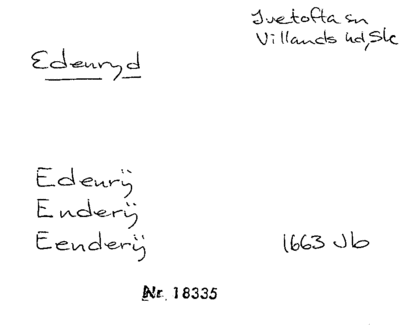 Ivetofta sn
Villands hd, Sk
Edenryd
Edenrÿ
Enderÿ
Eenderÿ 1663 Jb
Nr. 18335